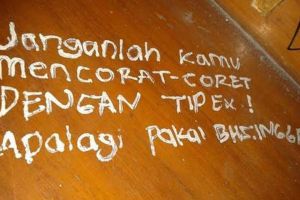 Janganlah kamu
mencorat-coret
DENGAN TIPEX.!
Apalagi pakai BHS.INGG